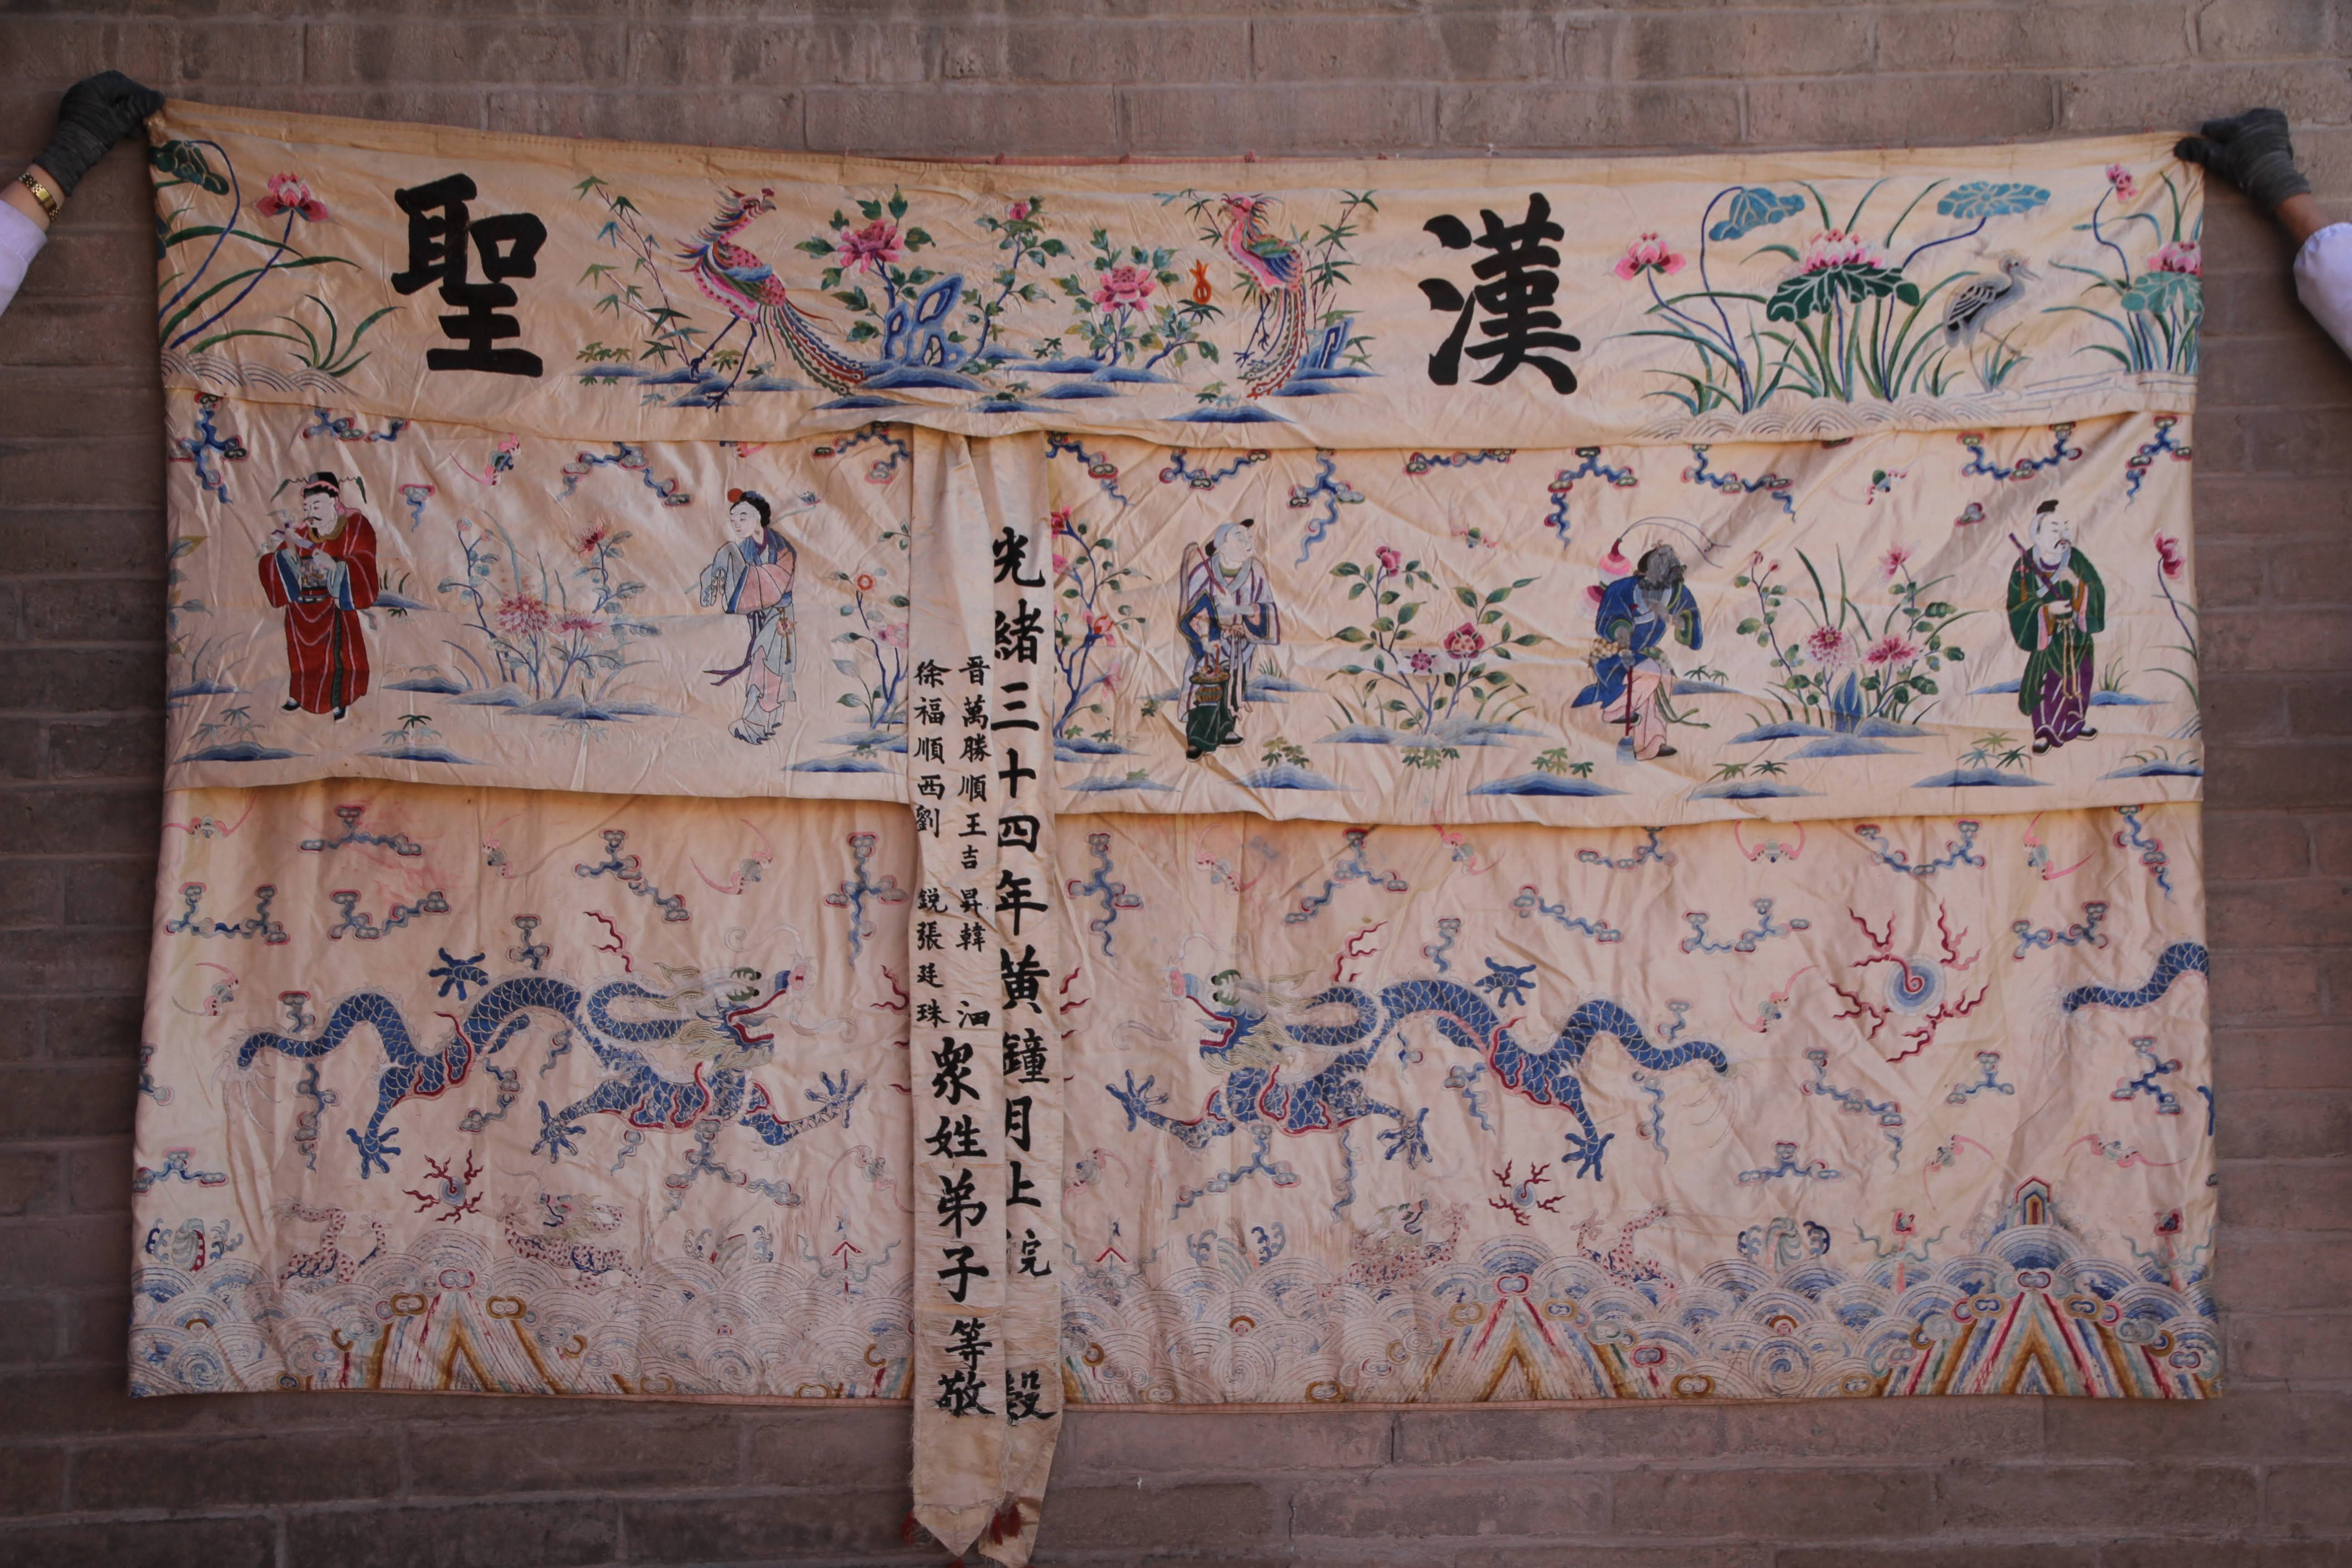 漢聖
光緒三十四年黃鐘月上浣 設
晋萬勝順王吉昇韓
徐福順西劉銳張廷珠
眾姓弟子等敬